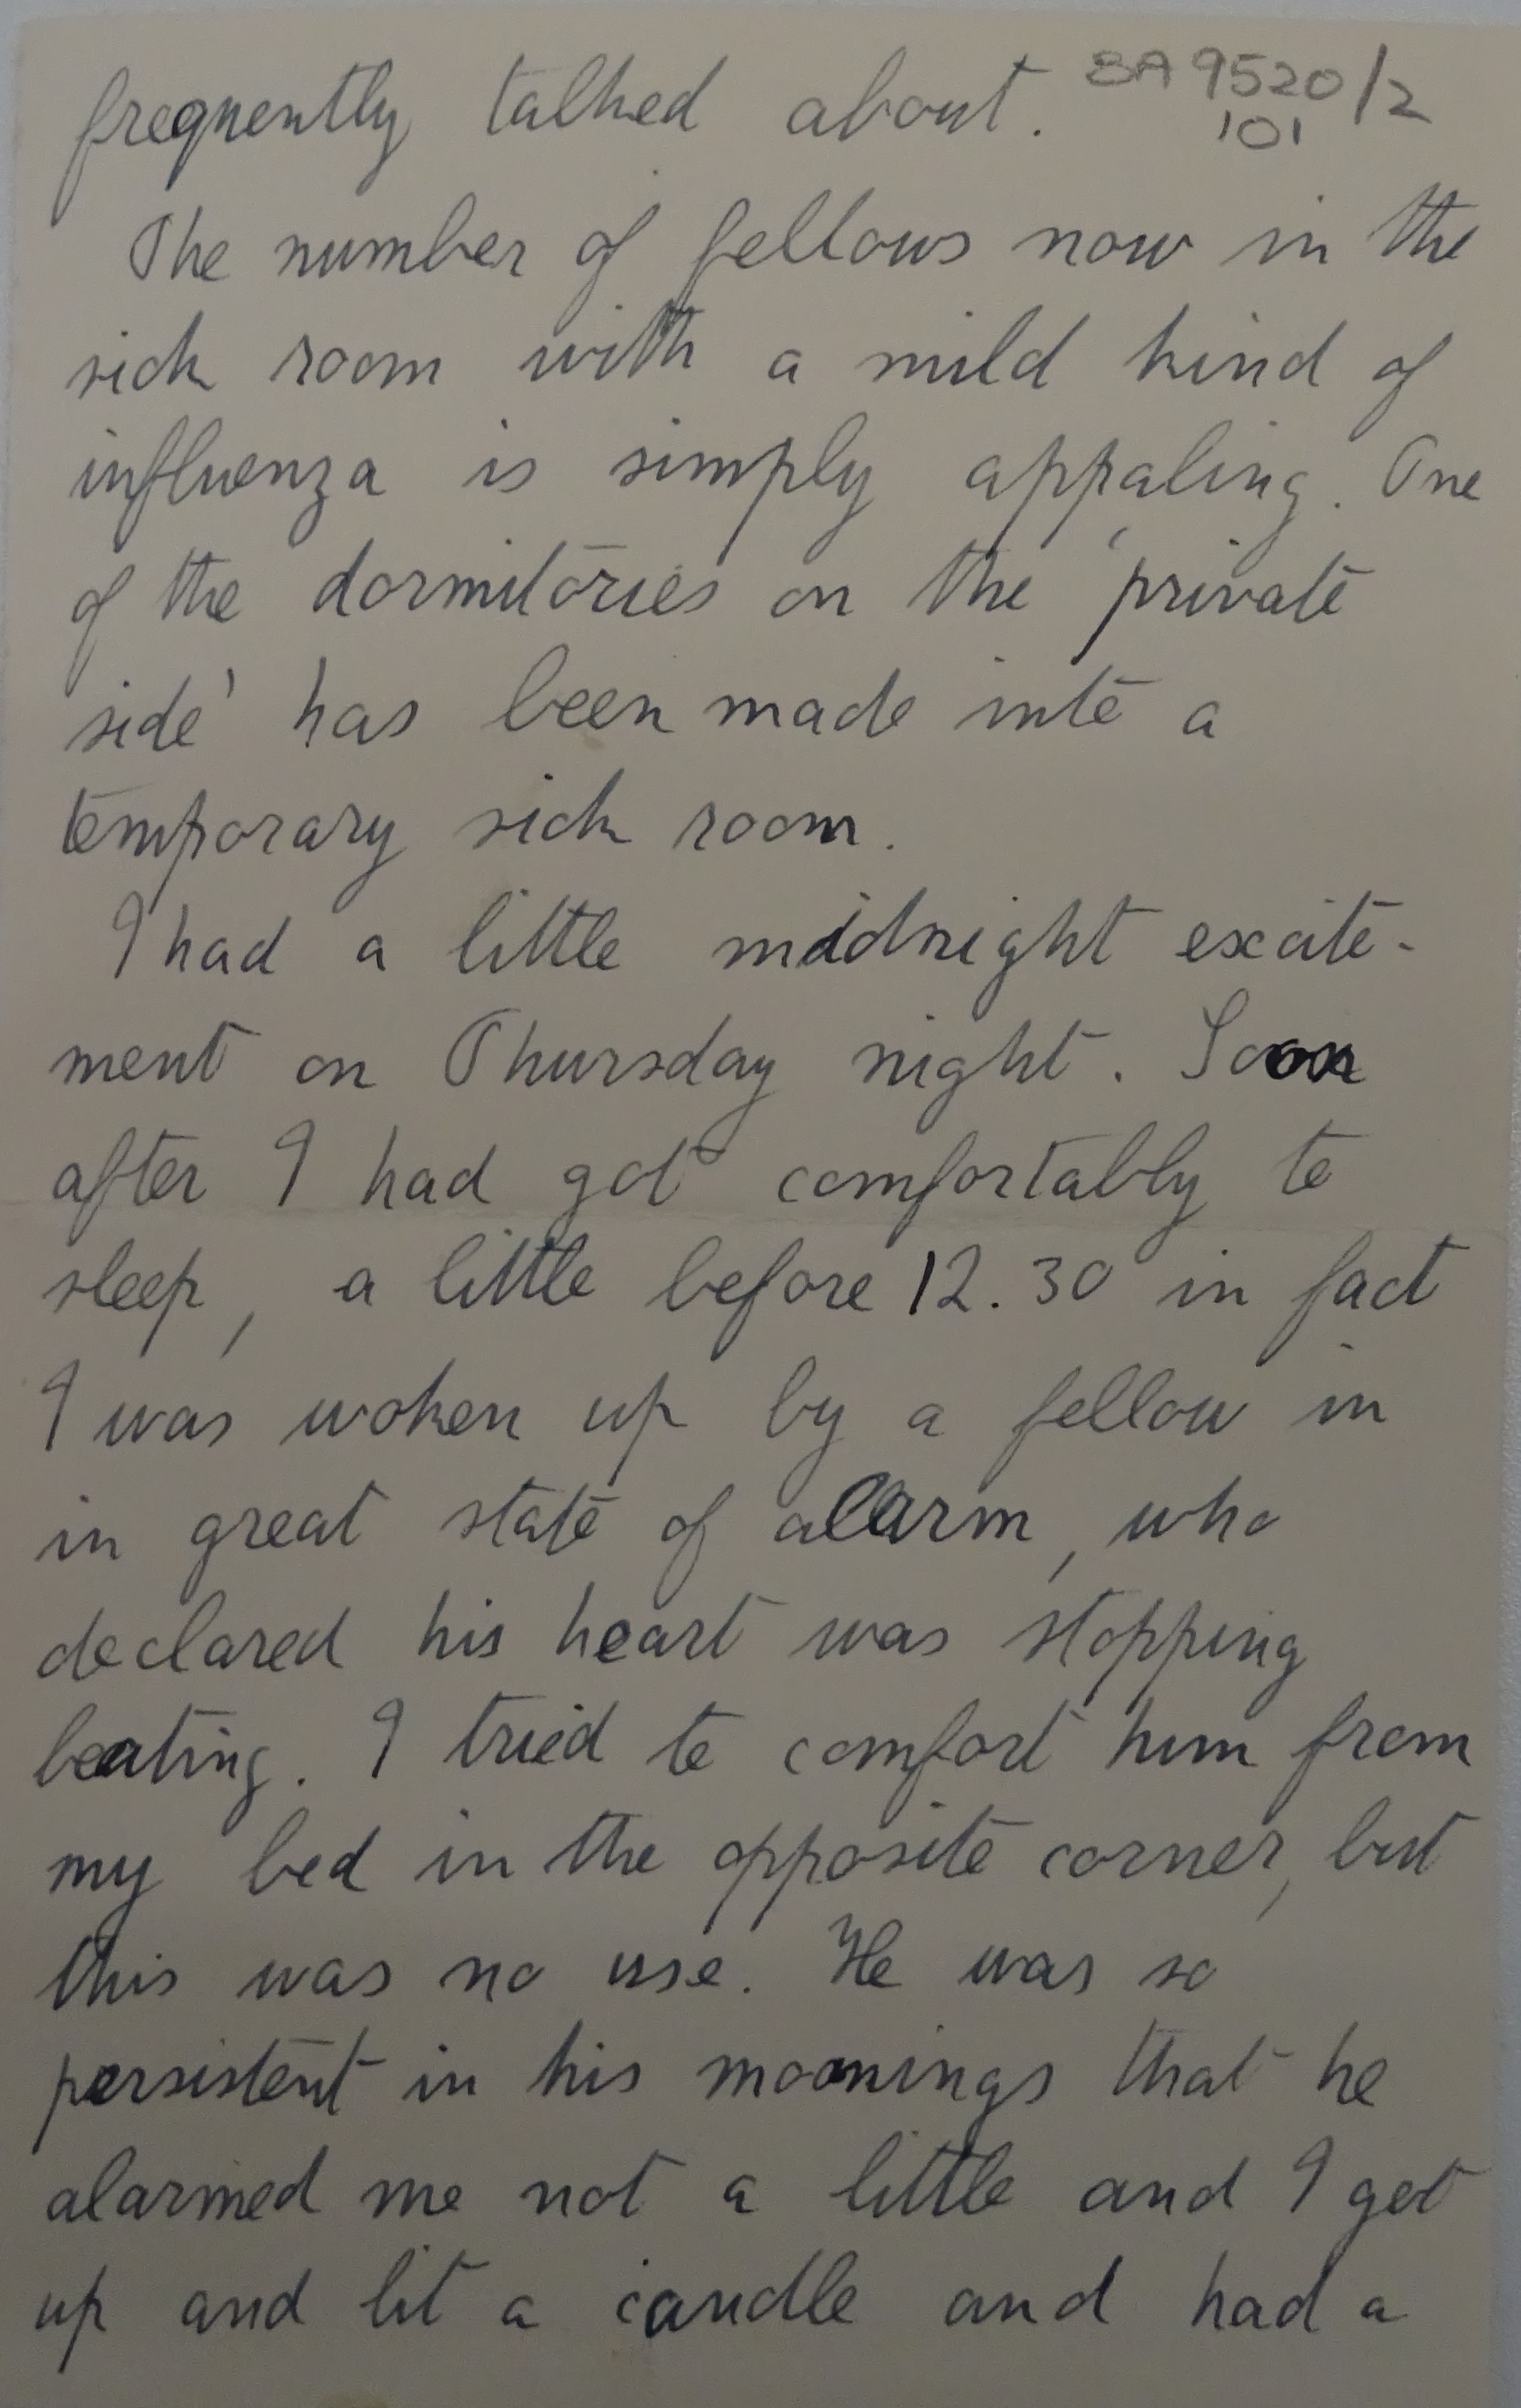 frequently talked about. 8A 9520/2
101
The number of fellows now in the
sick room with a mild kind of
influenza is simply appaling. One
of the dormitories on the 'private
side' has been made into a
temporary sick room.
I had a little midnight excite-
ment on Thursday night. Soon
after I had got comfortably to
sleep, a little before 12.30 in fact
I was woken up by a fellow in
in great state of alarm, who
declared his heart was stopping
beating. I tried to comfort him from
my bed in the opposite corner, but
this was no use. He was so
persistent in his moanings that he
alarmed me not a little and I got
up and lit a candle and had a